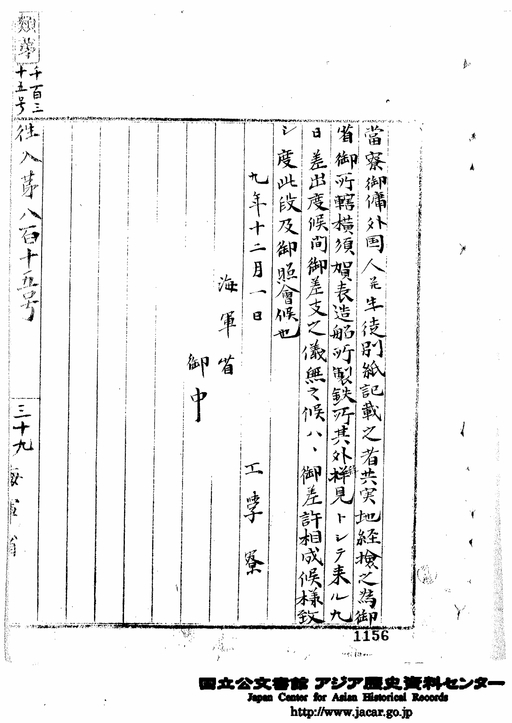 當寮御傭外国人並生徒別紙記載之者共実地経撿之為御
省御所轄横須賀表造船所製鉄所其外拝見トシテ来ル九
日差出度候間御差支之儀無之候ハヽ御差許相成候様致
シ度此段及御照會候也
九年十二月一日
工學寮
海軍省
御中
往入第八百十五号
三十九
海軍省
千百三
十五号
1156
国立公文書館 アジア歴史資料センター
Japan Center for Asian Historical Records
http://www.jacar.go.jp